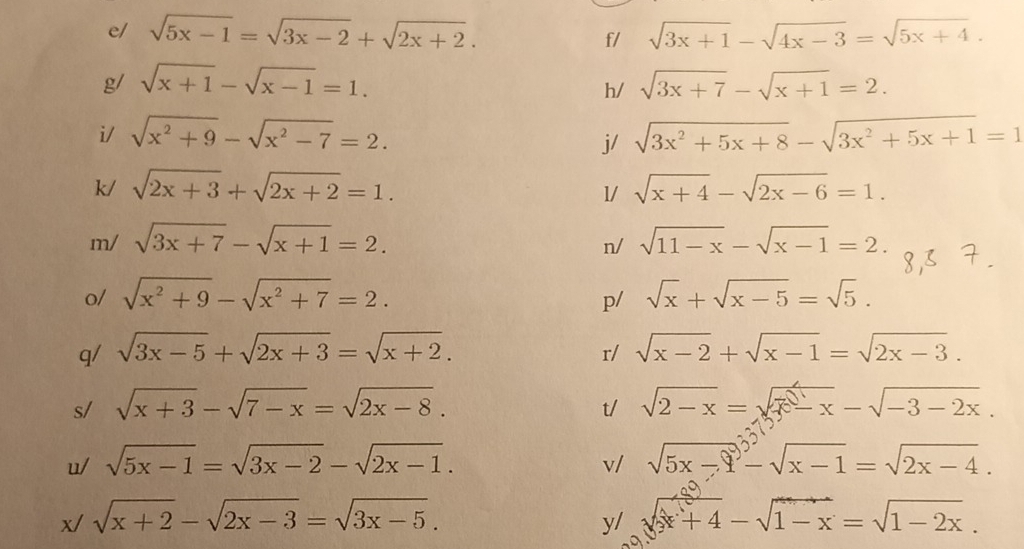 e/ √(5x − 1) = √(3x − 2) + √(2x + 2).
f/ √(3x + 1) − √(4x − 3) = √(5x + 4).
g/ √(x + 1) − √(x − 1) = 1.
h/ √(3x + 7) − √(x + 1) = 2.
i/ √(x² + 9) − √(x² − 7) = 2.
j/ √(3x² + 5x + 8) − √(3x² + 5x + 1) = 1
k/ √(2x + 3) + √(2x + 2) = 1.
l/ √(x + 4) − √(2x − 6) = 1.
m/ √(3x + 7) − √(x + 1) = 2.
n/ √(11 − x) − √(x − 1) = 2.
8,3 7.
o/ √(x² + 9) − √(x² + 7) = 2.
p/ √x + √(x − 5) = √5.
q/ √(3x − 5) + √(2x + 3) = √(x + 2).
r/ √(x − 2) + √(x − 1) = √(2x − 3).
s/ √(x + 3) − √(7 − x) = √(2x − 8).
t/ √(2 − x) = √(7 − x) − √(−3 − 2x).
u/ √(5x − 1) = √(3x − 2) − √(2x − 1).
v/ √(5x − 1) − √(x − 1) = √(2x − 4).
x/ √(x + 2) − √(2x − 3) = √(3x − 5).
y/ √(x + 4) − √(1 − x) = √(1 − 2x).